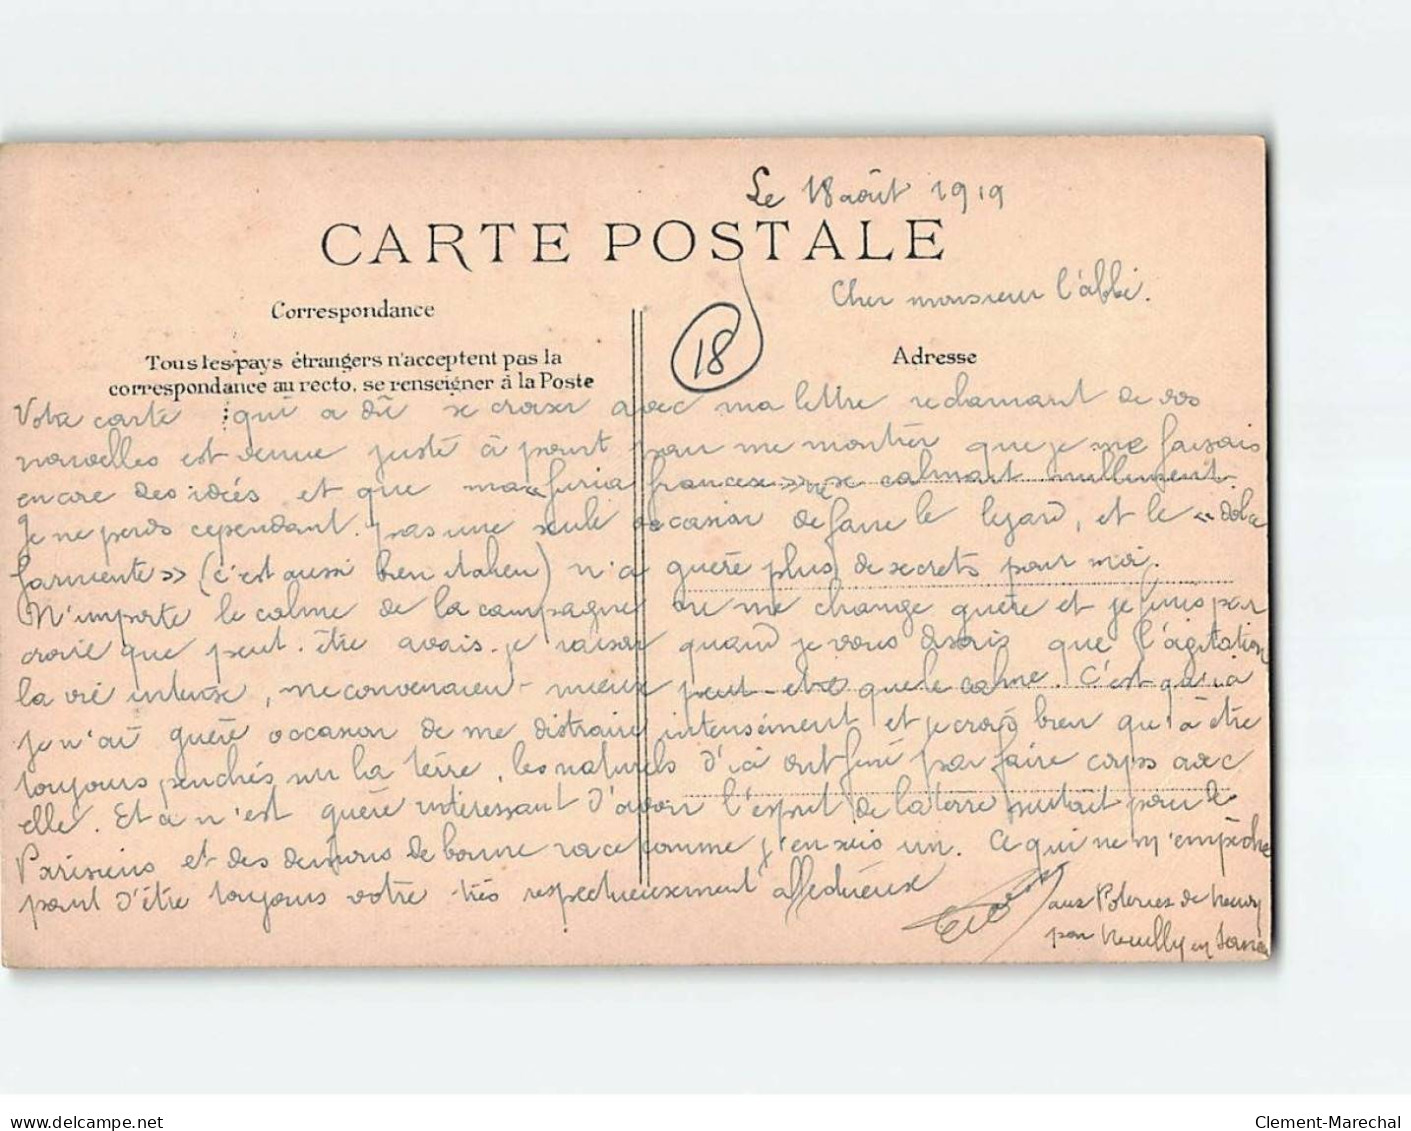 Le 18 août 1919
CARTE POSTALE
Cher monsieur l'abbé.
Correspondance
18
Tous les pays étrangers n'acceptent pas la
correspondance au recto, se renseigner à la Poste
Adresse
Votre carte qui a dû se croiser avec ma lettre réclamant de vos
nouvelles est venue juste à point pour me montrer que je me faisais
encore des idées et que ma « furia francese » ne se calmait nullement.
Je ne perds cependant pas une seule occasion de faire le lézard, et le « dolce
farniente » (c'est aussi bien italien) n'a guère plus de secrets pour moi.
N'importe le calme de la campagne ne me change guère et je finis par
croire que peut-être avais-je raison quand je vous disais que l'agitation
la vie intense, me convenaient mieux peut-être que le calme. C'est qu'ici
je n'ai guère occasion de me distraire intensément et je crois bien qu'à être
toujours penchés sur la terre, les naturels d'ici ont fini par faire corps avec
elle. Et ce n'est guère intéressant d'avoir l'esprit de la terre surtout pour le
Parisiens et des démons de bonne race comme j'en suis un. Ce qui ne m'empêche
point d'être toujours votre très respectueusement affectueux
aux Poteries de
par Neuilly en
Clement-Marechal